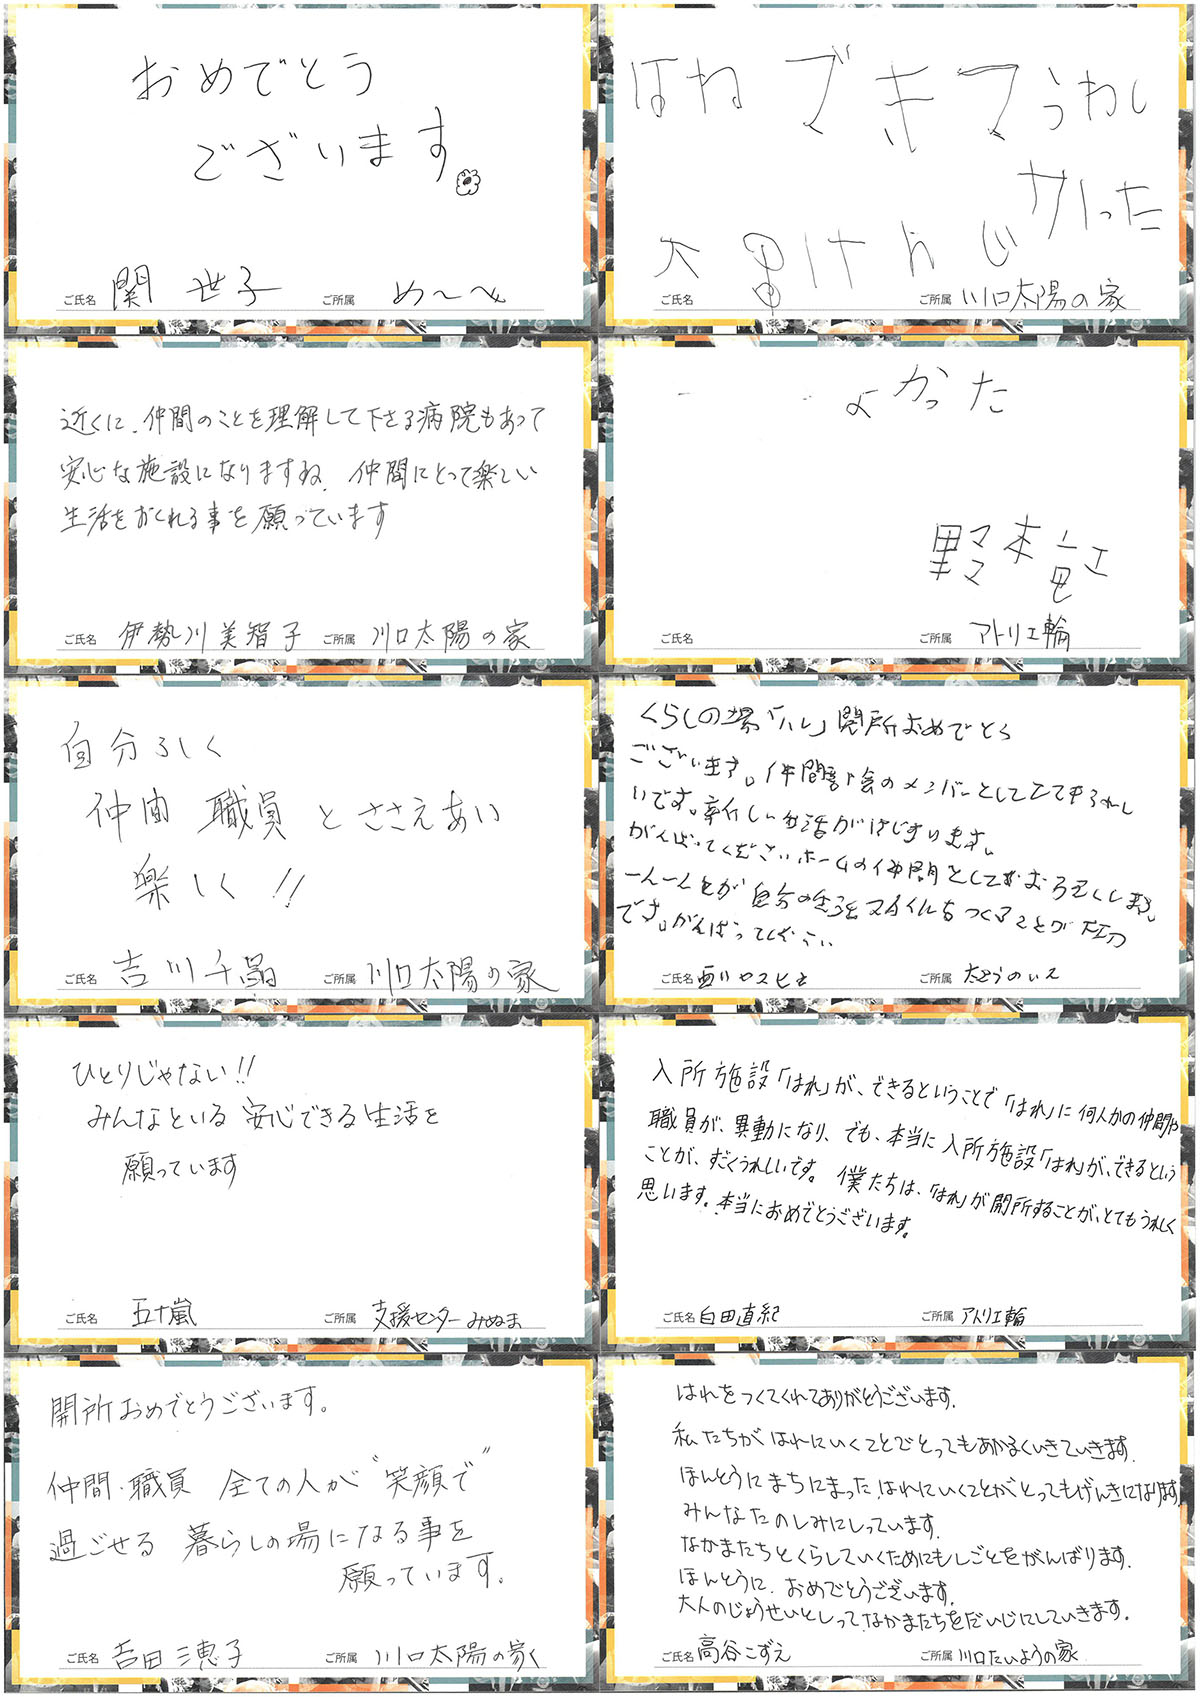 おめでとう
ございます。
ご氏名 関 世子 ご所属 め〜〜
はね デキてうれし
カった
大 けんじ
ご氏名 ご所属 川口太陽の家
近くに、仲間のことを理解して下さる病院もあって
安心な施設になりますね。仲間にとって楽しい
生活をおくれる事を願っています
ご氏名 伊勢川美智子 ご所属 川口太陽の家
よかった
野本竜江
ご氏名 ご所属 アトリエ輪
自分らしく
仲間 職員 とささえあい
楽しく!!
ご氏名 吉川千晶 ご所属 川口太陽の家
くらしの場「ハレ」開所おめでとう
ございます。仲間 会のメンバーとして
いです。新しい生活がはじまります。
がんばってくださいホームの仲間として
一人一人とが自分の スタイルをつくることが
です。がんばってください
ご氏名 西川ヤスヒオ ご所属 太ようのいえ
ひとりじゃない!!
みんなといる 安心できる生活を
願っています
ご氏名 五十嵐 ご所属 支援センターみぬま
入所施設「はれ」が、できるということで「はれ」に何人かの仲間や
職員が、異動になり、でも、本当に入所施設「はれ」が、できるという
ことが、すごくうれしいです。僕たちは、「はれ」が開所することが、とてもうれしく
思います。本当におめでとうございます。
ご氏名 白田直紀 ご所属 アトリエ輪
開所おめでとうございます。
仲間・職員 全ての人が“笑顔で”
過ごせる 暮らしの場になる事を
願っています。
ご氏名 吉田三恵子 ご所属 川口太陽の家
はれをつくてくれてありがとうございます.
私たちがはれにいくことでとってもあかるくいきていきます.
ほんとうにまちにまった.はれにいくことがとってもげんきになります.
みんなたのしみにしっています.
なかまたちとくらしていくためにもしごとをがんばります.
ほんとうに. おめでとうございます.
大人のじょうせいとしってなかまたちをだいじにしていきます.
ご氏名 高谷こずえ ご所属 川口たいようの家